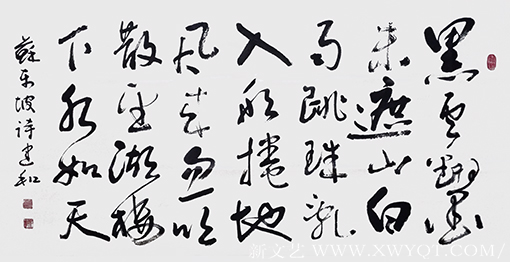 黑雲翻墨
未遮山白
雨跳珠亂
入船捲地
風來忽吹
散望湖樓
下水如天
蘇東坡詩建和
新文艺 WWW.XWYQT.COM/